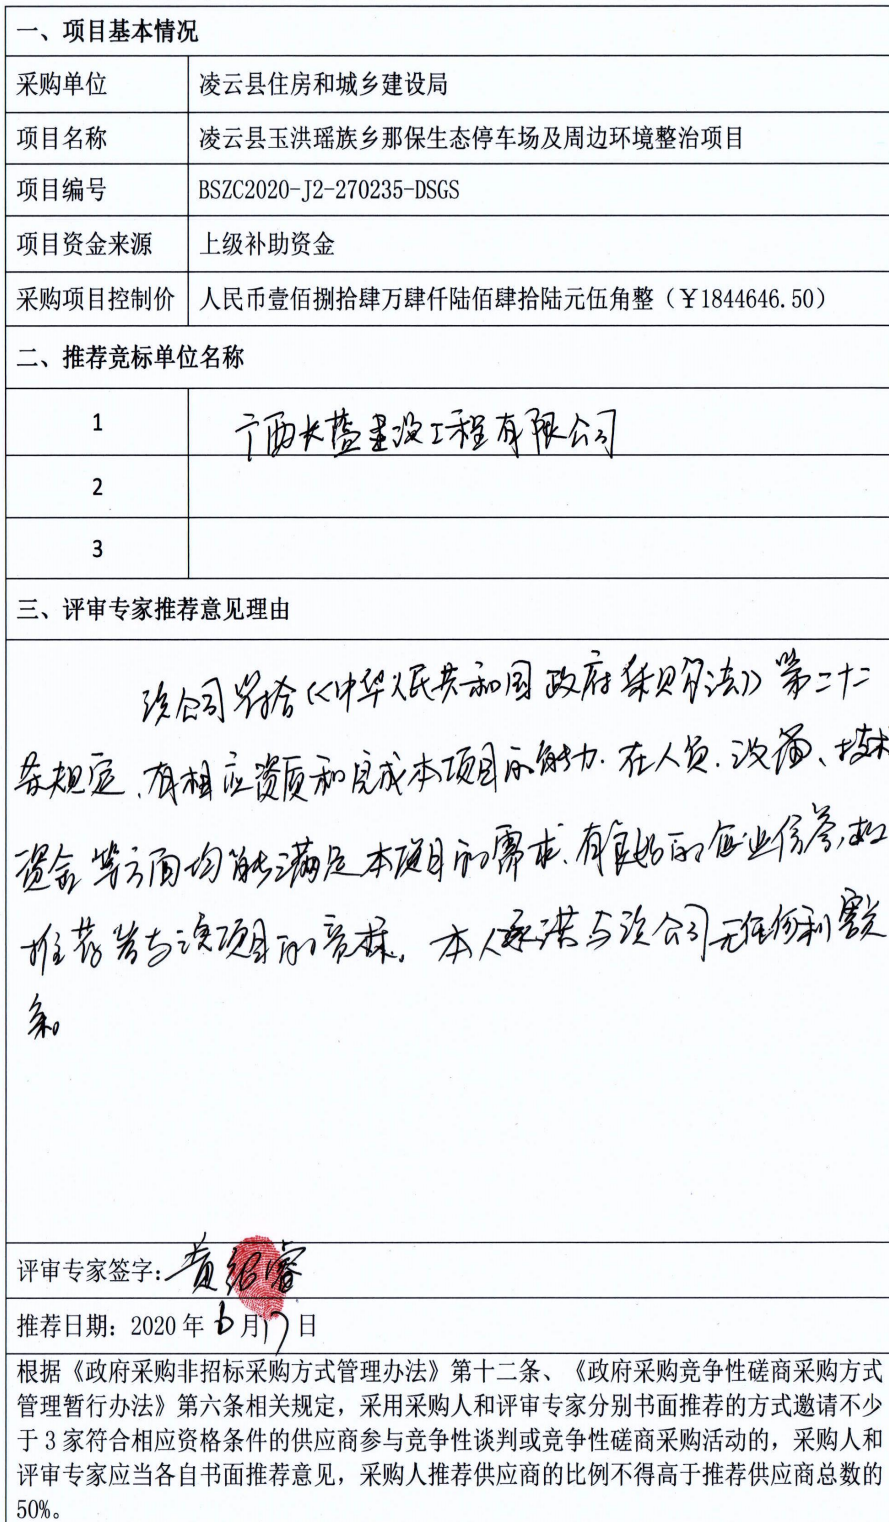 一、项目基本情况
采购单位 凌云县住房和城乡建设局
项目名称 凌云县玉洪瑶族乡那保生态停车场及周边环境整治项目
项目编号 BSZC2020-J2-270235-DSGS
项目资金来源 上级补助资金
采购项目控制价 人民币壹佰捌拾肆万肆仟陆佰肆拾陆元伍角整（¥1844646.50）
二、推荐竞标单位名称
1 广西长蓝建设工程有限公司
2
3
三、评审专家推荐意见理由
该公司符合《中华人民共和国政府采购法》第二十二
条规定、有相应资质和完成本项目的能力. 在人员. 设备、技术
资金等方面均能满足本项目的需求、有良好的企业信誉,
推荐参与该项目的竞标。本人承诺与该公司无任何利害关
系。
评审专家签字：黄绍睿
推荐日期：2020年6月17日
根据《政府采购非招标采购方式管理办法》第十二条、《政府采购竞争性磋商采购方式
管理暂行办法》第六条相关规定，采用采购人和评审专家分别书面推荐的方式邀请不少
于3家符合相应资格条件的供应商参与竞争性谈判或竞争性磋商采购活动的，采购人和
评审专家应当各自书面推荐意见，采购人推荐供应商的比例不得高于推荐供应商总数的
50%。